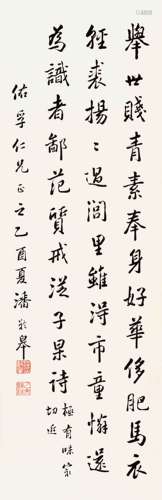 舉世賤青素奉身好華侈肥馬衣
輕裘揚〻過閭里雖得市童憐還
為識者鄙范質戒從子杲詩
極有味家
切近
佑孚仁兄正之乙酉夏潘齡皋